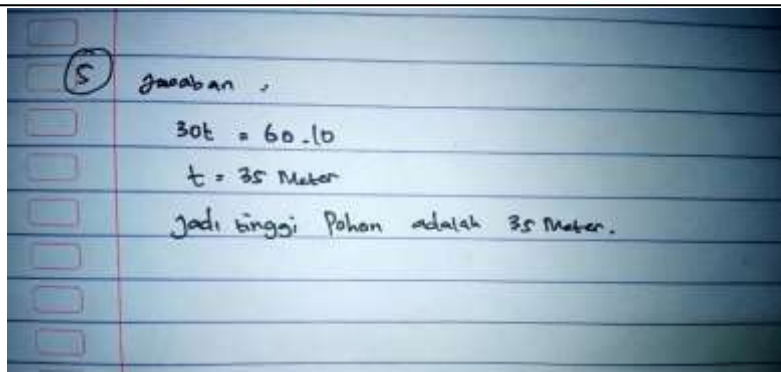 5 Jawaban,
30t = 60.10
t = 35 Meter
Jadi tinggi Pohon adalah 35 Meter.